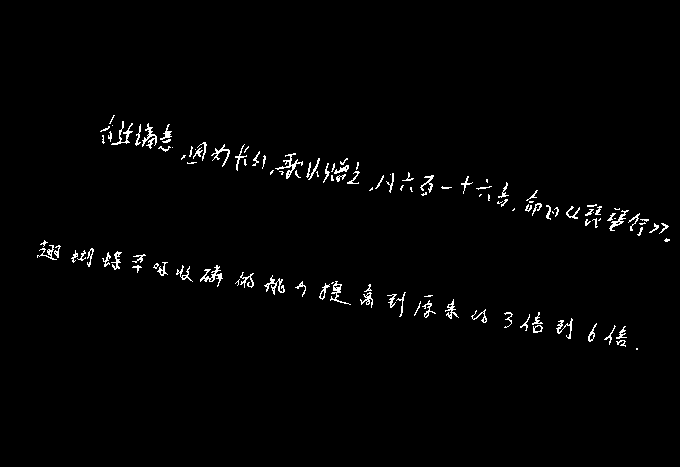 有迁谪意,因为长句,歌以赠之,凡六百一十六言,命曰《琵琶行》。
翅蝴蝶草吸收磷的能力提高到原来的3倍到6倍.